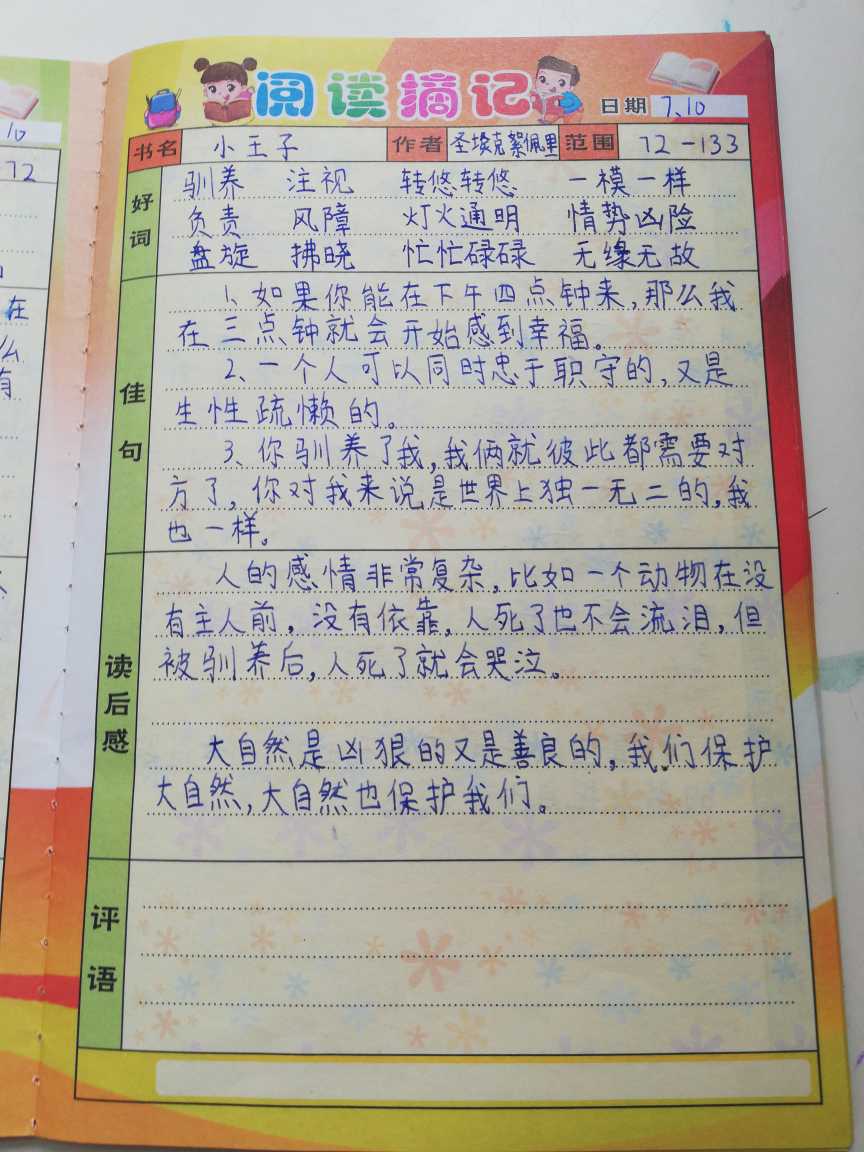 阅读摘记
日期 7.10
书名 小王子 作者 圣埃克絮佩里 范围 72-133
好词
驯养 注视 转悠转悠 一模一样
负责 风障 灯火通明 情势凶险
盘旋 拂晓 忙忙碌碌 无缘无故
佳句
1、如果你能在下午四点钟来,那么我
在三点钟就会开始感到幸福。
2、一个人可以同时忠于职守的,又是
生性疏懒的。
3、你驯养了我,我俩就彼此都需要对
方了,你对我来说是世界上独一无二的,我
也一样。
读后感
人的感情非常复杂,比如一个动物在没
有主人前,没有依靠,人死了也不会流泪,但
被驯养后,人死了就会哭泣。
大自然是凶狠的又是善良的,我们保护
大自然,大自然也保护我们。
评语
10
72
在
么
有